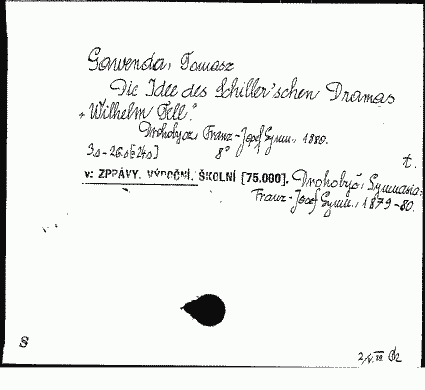 Gawenda, Tomasz
Die Idee des Schiller'schen Dramas
„Wilhelm Tell".
Drohobycz, Franz-Josef Gymn., 1880.
3.s - 26.s [24s]   8°
t.
v: ZPRÁVY, VÝROČNÍ, ŠKOLNÍ [75.000]. Drohobyč, Gymnasia,
Franz-Josef Gymn., 1879-80.
S